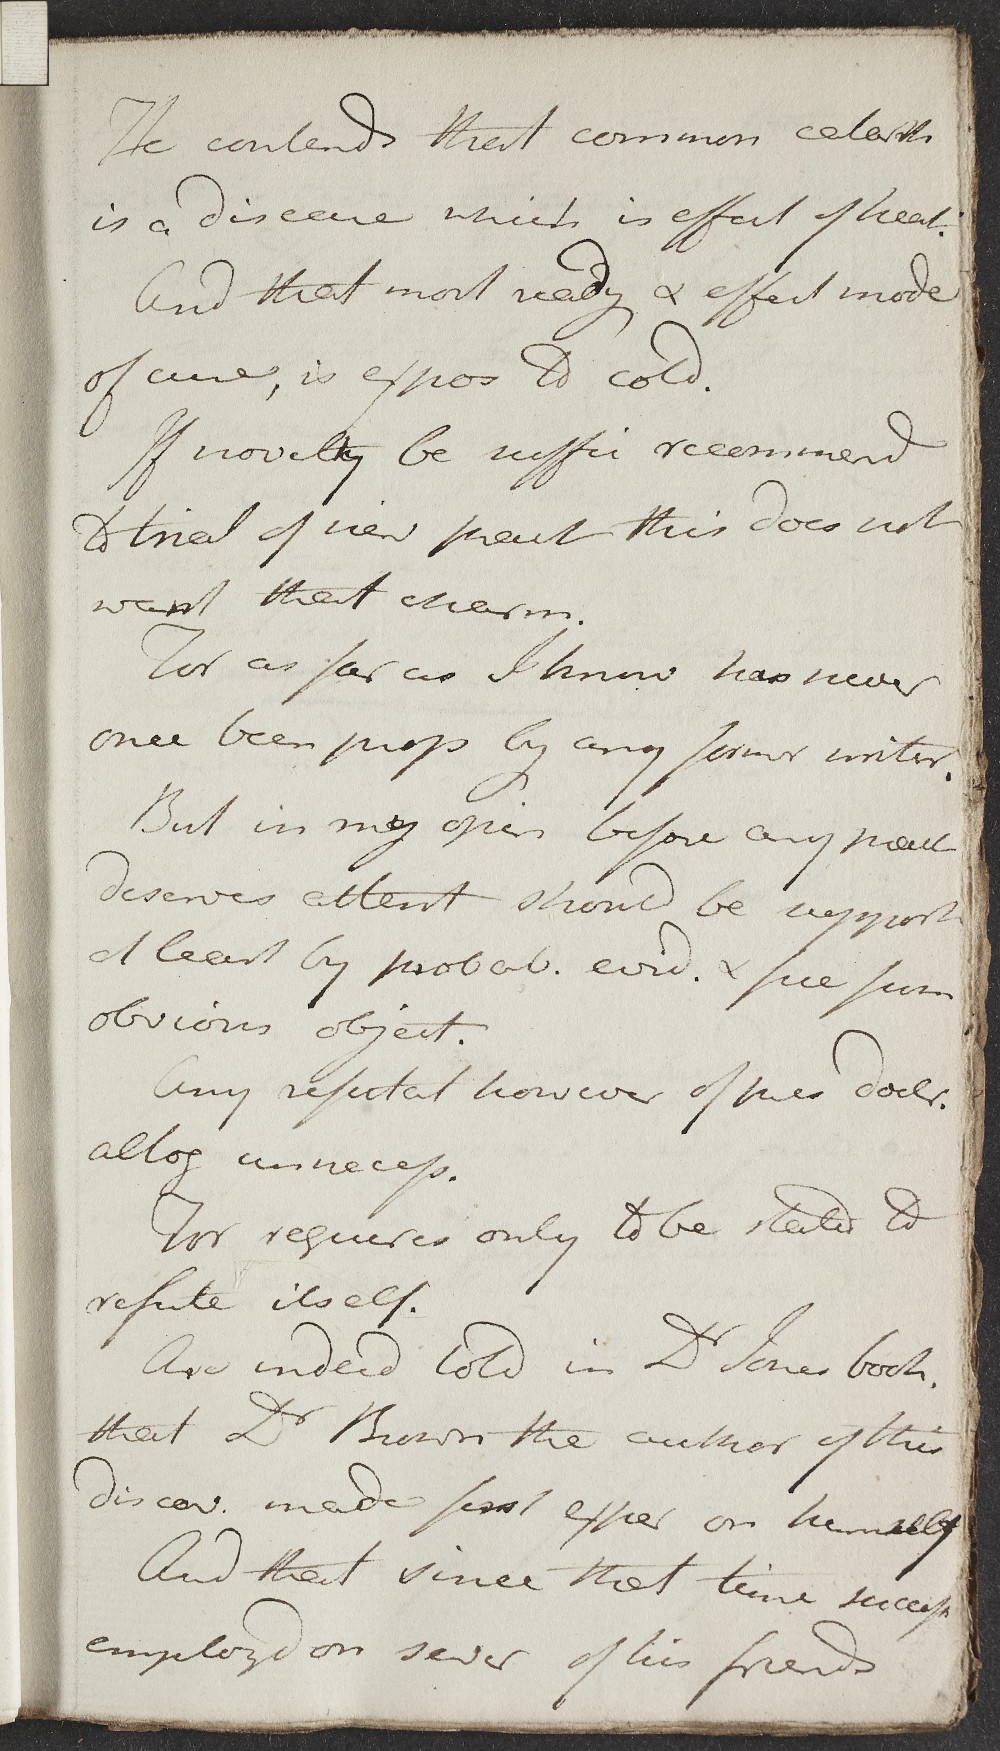 He contends that common catarrh
is a disease which is effect of heat.
And that most ready & effect mode
of cure, is expos to cold.
If novelty be suffic recommend
to trial of new pract this does not
want that charm.
For as far as I know has never
once been props by any former writer.
But in my opin before any pract
deserves attent should be support
at least by probab. evid. & free from
obvious object.
Any refutat however of pres doctr.
altog unnecess.
For requires only to be stated to
refute itself.
Are indeed told in Dr Jones book.
that Dr Brown the author of this
discov. made first exper on himself
And that since that time success
employd on sever of his friends